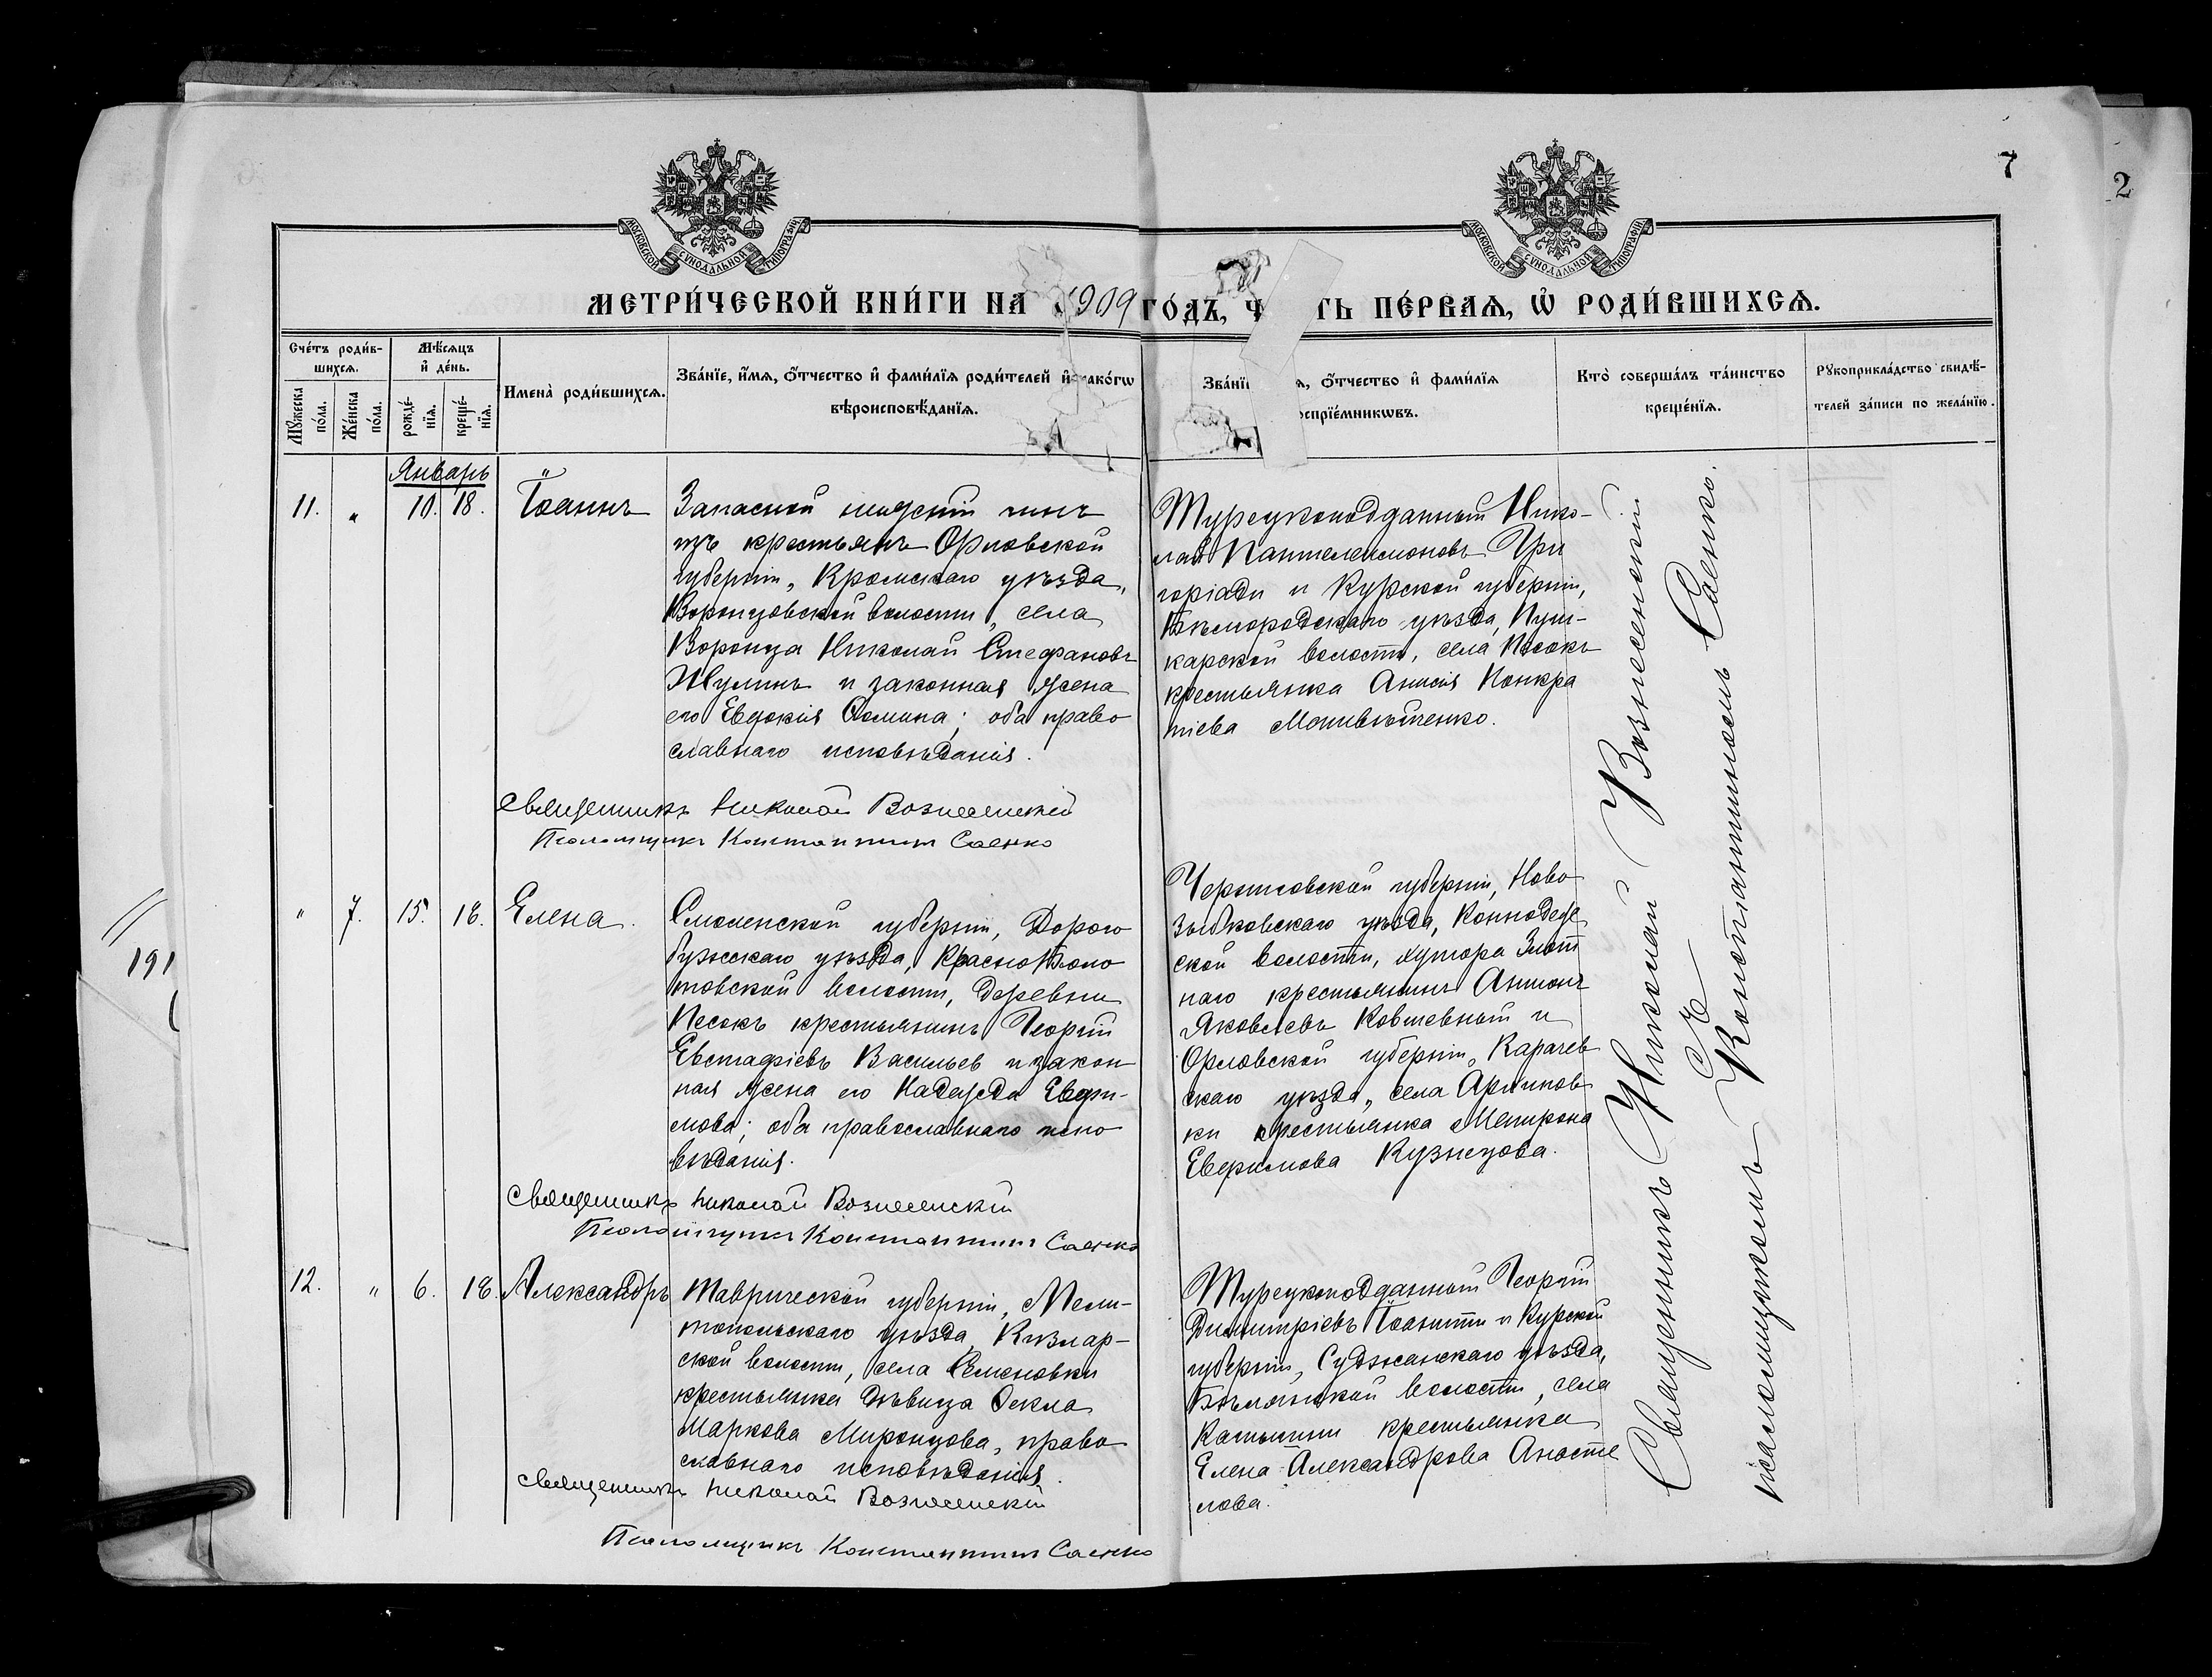 7
2
МОСКОВСКОЙ СѴНОДАЛЬНОЙ ТИПОГРАФІИ
МОСКОВСКОЙ СѴНОДАЛЬНОЙ ТИПОГРАФІИ
МЕТРИ́ЧЕСКОЙ КНИ́ГИ НА 1909 ГО́ДЪ, Ч ТЬ ПЕ́РВАѦ, Ѡ҆ РОДИ́ВШИХСѦ.
Сче́тъ роди́в-
шихсѧ.
Мꙋ́жеска по́ла.
Же́нска по́ла.
Мѣ́сѧцъ
и҆ де́нь.
рожде́-
нїѧ.
креще́-
нїѧ.
Имена̀ роди́вшихсѧ.
Зва́нїе, и҆́мѧ, ѻ҆́тчество и҆ фами́лїѧ роди́телей и҆ како́гѡ
вѣроисповѣ́данїѧ.
Зва́нї ѧ, ѻ҆́тчество и҆ фами́лїѧ
оспрїе́мникѡвъ.
Кто̀ соверша́лъ та́инство
креще́нїѧ.
Рꙋкоприкла́дство свидѣ́-
телей за́писи по жела́нїю.
Январь
11. " 10. 18. Іоаннъ
Запасной нижній чинъ
изъ крестьянъ Орловской
губерніи, Кромскаго уѣзда,
Воронцовской волости, села
Воронца Николай Стефановъ
Жулинъ и законная жена
его Евдокія Ѳомина; оба право
славнаго исповѣданія.
Турецкоподданный Нико-
лай Пантелеимоновъ Гри
горіади и Курской губерніи,
Бѣлгородскаго уѣзда, Пуш-
карской волости, села Песокъ
крестьянка Анисія Понкра
тіева
Священникъ Николай Вознесенскій
Псаломщикъ Константинъ Саенко
" 7. 15. 18. Елена.
Смоленской губерніи, Дорого
бужскаго уѣзда, Красноболо
товской волости, деревни
Песокъ крестьянинъ Георгій
Евстафіевъ Васильев и закон
ная жена его Надежда Евфи-
мова; оба православнаго испо
вѣданія.
Черниговской губерніи, Ново
зыбковскаго уѣзда,
ской волости, хутора
наго крестьянинъ Антонъ
Яковлевъ и
Орловской губерніи, Карачев
скаго уѣзда, села
ки крестьянка Матрона
Евфимова Кузнецова.
Священникъ Николай Вознесенскій
Псаломщикъ Константинъ Саенко
12. " 6. 18. Александръ
Таврической губерніи, Мели-
топольскаго уѣзда, Кизлар-
ской волости, села Семеновки
крестьянка дѣвица Ѳекла
Маркова Миронцова, право
славнаго исповѣданія.
Турецкоподданный Георгій
Димитріевъ и Курской
губерніи, Суджанскаго уѣзда,
волости, села
крестьянка
Елена Александрова Апосто
лова.
Священникъ Николай Вознесенскій
Псаломщикъ Константинъ Саенко
Священникъ Николай Вознесенскій
съ
псаломщикомъ Константиномъ Саенко.
191